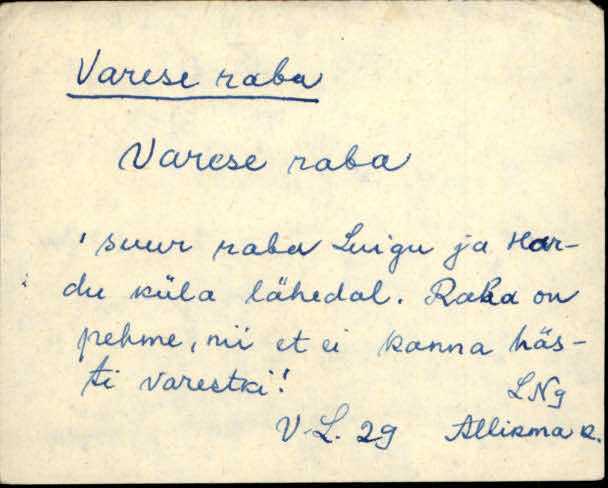 Varese raba
Varese raba
'suur raba Luigu ja Har-
du küla lähedal. Raba on
pehme, nii et ei kanna häs-
ti varestki!'
LNg
V-L. 29 Allikma k.